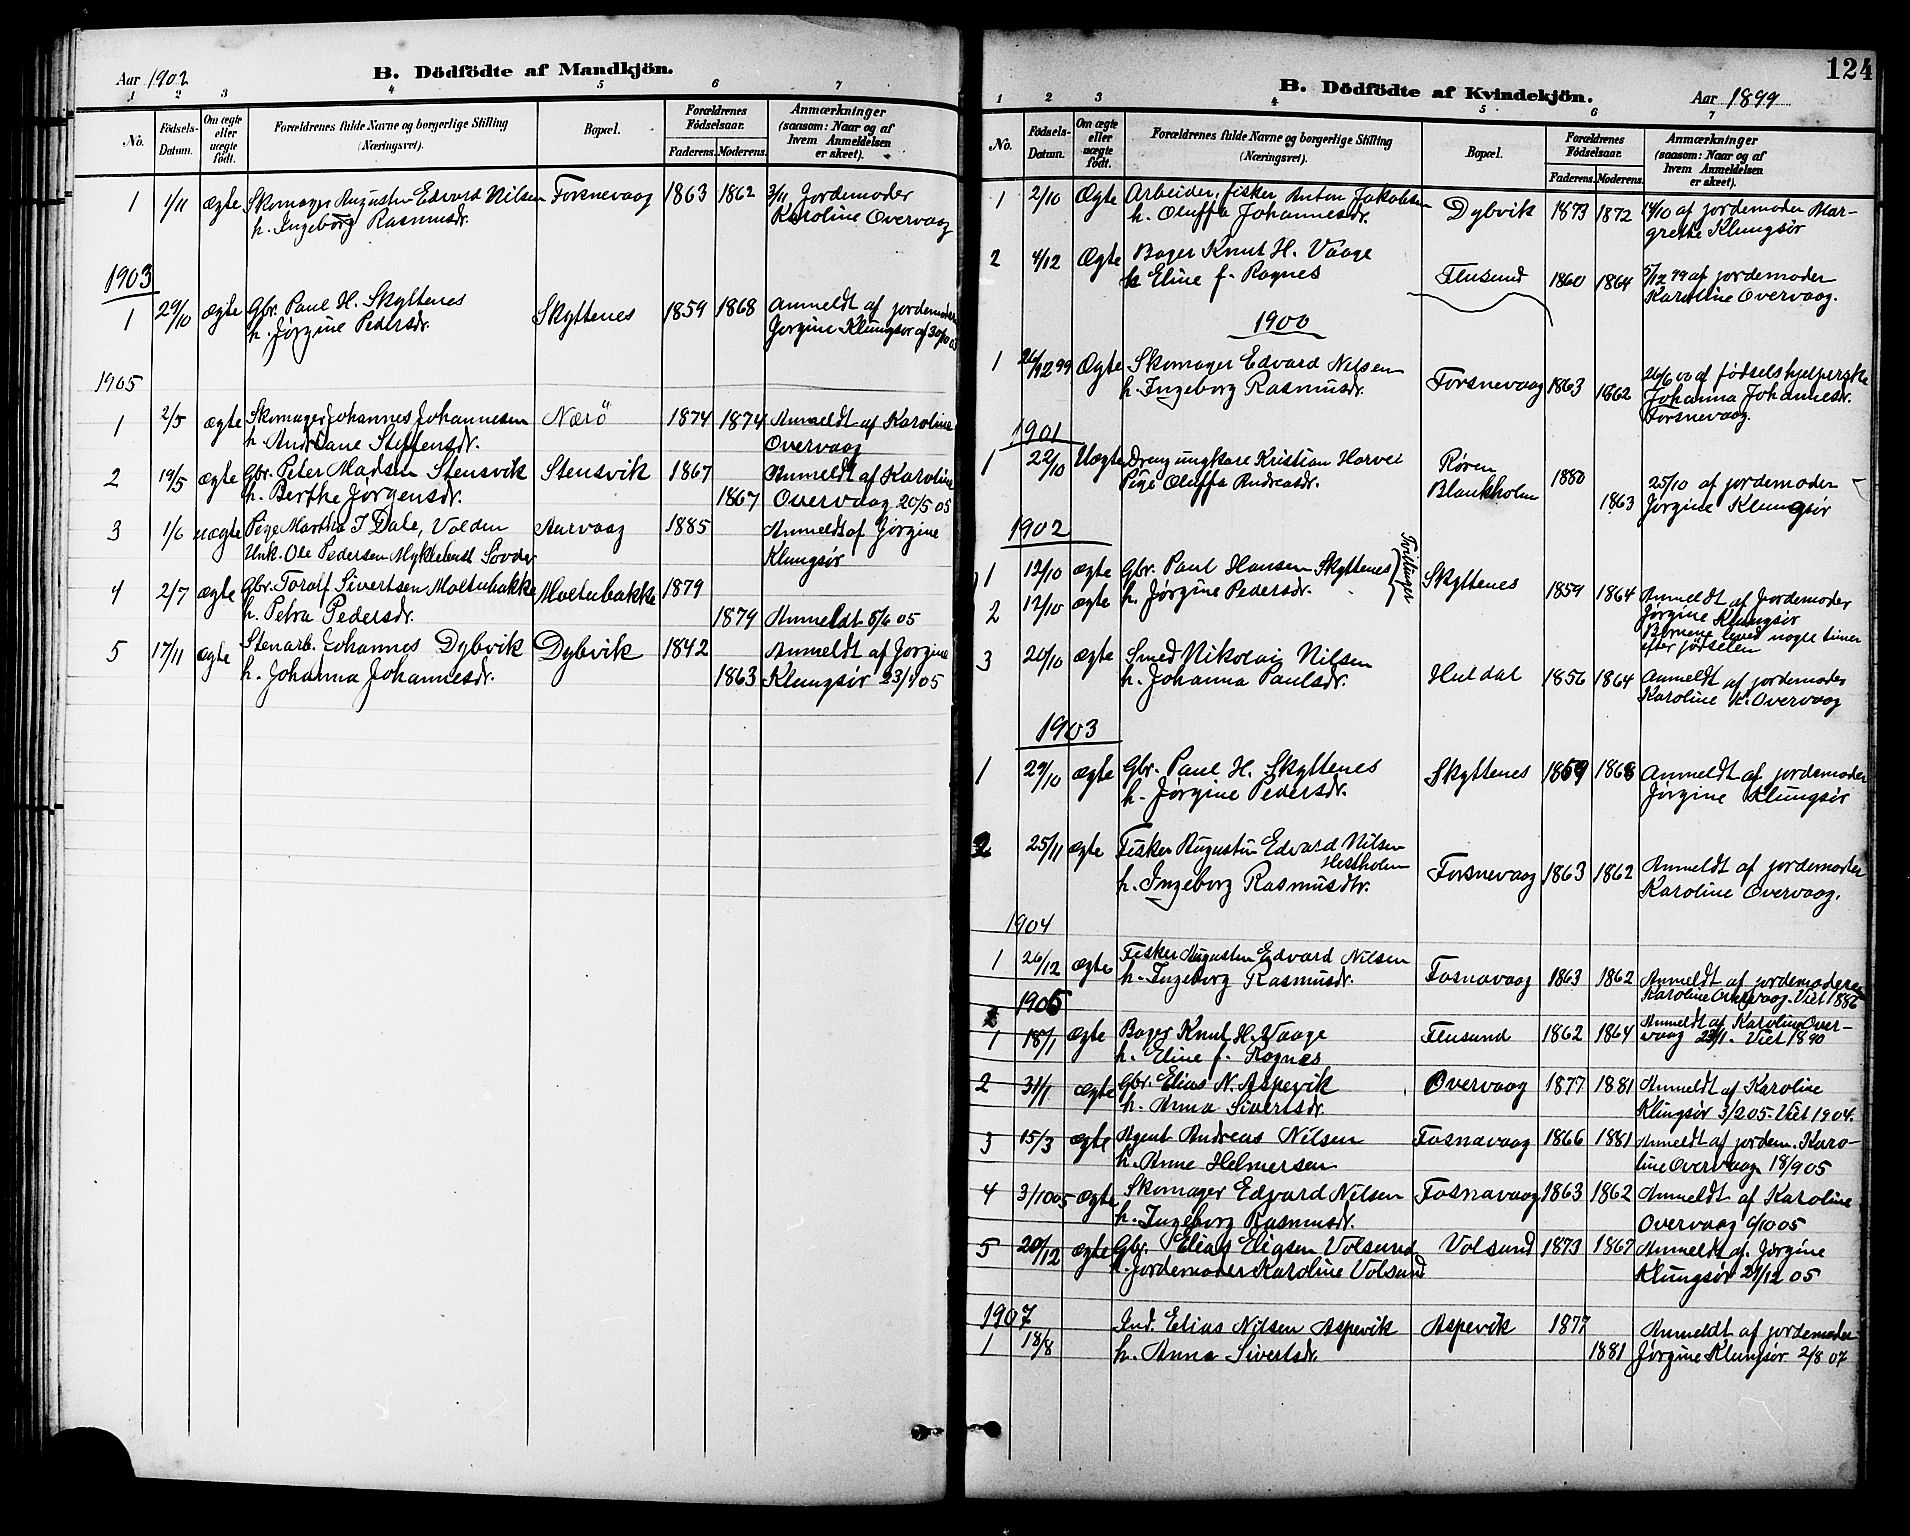 Aar 1902
B. Dödfödte af Mandkjön.
1 2 3 4 5 6 7
No.
Födsels-Datum.
Om ægte eller uægte födt.
Forældrenes fulde Navne og borgerlige Stilling (Næringsvei).
Bopæl.
Forældrenes Födselsaar.
Faderens. Moderens.
Anmærkninger (saasom: Naar og af hvem Anmeldelsen er skeet).
1 1/11 ægte Skomager Augustin Edvard Nilsen Forsnevaag 1863 1862 3/11 Jordemoder
h. Ingeborg Rasmusdr. Karoline Overvaag
1903
1 29/10 ægte Gbr. Paul H. Skyttenes Skyttenes 1859 1868 Anmeldt af jordemoder
h. Jørgine Pedersdr. Jørgine Klungsør af 30/10 03
1905
1 2/5 ægte Skomager Johannes Johannesen Nærö 1874 1874 Anmeldt af Karoline
h. Andriane Steffensdr. Overvaag
2 19/5 ægte Gbr. Peter Madsen Stensvik Stensvik 1867 Anmeldt af Karoline
h. Berthe Jørgensdr. 1867 Overvaag 20/5 05
3 1/6 uægte Pige Martha J Dale, Volden Aurvaag 1885 Anmeldt af Jørgine
Unk. Ole Pedersen Myklebust Søvde Klungsør
4 2/7 ægte Gbr. Toralf Sivertsen Moltubakke Moltubakke 1879
h. Petra Pedersdr. 1879 Anmeldt 5/6 05
5 17/11 ægte Stenarb. Johannes Dybvik Dybvik 1842 Anmeldt af Jørgine
h. Johanna Johannesdr. 1863 Klungsør 23/11 05
124
B. Dödfödte af Kvindekjön.
Aar 1899
1 2 3 4 5 6 7
No.
Födsels-Datum.
Om ægte eller uægte födt.
Forældrenes fulde Navne og borgerlige Stilling (Næringsvei).
Bopæl.
Forældrenes Födselsaar.
Faderens. Moderens.
Anmærkninger (saasom: Naar og af hvem Anmeldelsen er skeet).
1 2/10 Ægte Arbeider, fisker Anton Jakobsen Dybvik 1873 1872 14/10 af jordemoder Mar-
h. Oluffa Johannesdr. grethe Klungsør
2 4/12 Ægte Bager Knut H. Vaage
h Eline f. Rognes Flusund 1860 1864 5/12 99 af jordemoder
Karoline Overvaag.
1900
1 26/12 99 Ægte Skomager Edvard Nilsen Forsnevaag 1863 1862 26/6 00 af fødselshjelperske
h. Ingeborg Rasmusdr. Johanna Johannesdr.
Forsnevaag.
1901
1 22/10 Uægte Dreng ungkare Kristian Røren 1880
Pige Oluffa Andreasdr. Blankholm 1863 25/10 af jordemoder
Jørgine Klungsør
1902
1 12/10 ægte Gbr. Paul Hansen Skyttenes Tvillinger Skyttenes 1859 1864 Anmeldt af Jordemoder
2 12/10 ægte h. Jørgine Pedersdr. Jørgine Klungsør
Børnene leved nogle timer
efter fødselen
3 20/10 ægte Smed Nikolai Nilsen Huldal 1856 1864 Anmeldt af jordemoder
h. Johanna Paulsdr. Karoline K. Overvaag
1903
1 29/10 ægte Gbr. Paul H. Skyttenes Skyttenes 1859 1868 Anmeldt af jordemoder
h. Jørgine Pedersdr. Jørgine Klungsør
2 25/11 ægte Fisker Augustin Edvard Nilsen
Hestholm
h. Ingeborg Rasmusdtr. Forsnevaag 1863 1862 Anmeldt af jordemoder
Karoline Overvaag.
1904
1 26/12 ægte Fisker Augusten Edvard Nilsen
h. Ingeborg Rasmusdr. Fosnavaag 1863 1862 Anmeldt af jordemoderen
Karoline Overvaag. Viet 1886
1905
1 18/1 ægte Bager Knut H. Vaage Flusund 1862 1864 Anmeldt af Karoline Over-
h. Eline f. Rognes vaag 23/1. Viet 1890
2 31/1 ægte Gbr. Elias N. Aspevik Overvaag 1877 1881 Anmeldt af Karoline
h. Anna Sivertsdr. Klungsør 3/2 05. Viet 1904.
3 15/3 ægte Agent Andreas Nilsen Fosnavaag 1866 1881 Anmeldt af jordem. Karo-
h. Anne Helmersen line Overvaag 18/9 05
4 3/10 05 ægte Skomager Edvard Nilsen Fosnavaag 1863 1862 Anmeldt af Karoline
h. Ingeborg Rasmusdr. Overvaag 6/10 05
5 20/12 ægte Gbr. Elias Eliasen Volsund Volsund 1873 1867 Anmeldt af. Jørgine
h. Jordemoder Karoline Volsund Klungsør 21/12 05
1907 Ind. Elias Nilsen Aspevik Aspevik 1877 Anmeldt af jordemoder
1 18/8 h. Anna Sivertsdr. 1881 Jørgine Klungsør 2/8 07